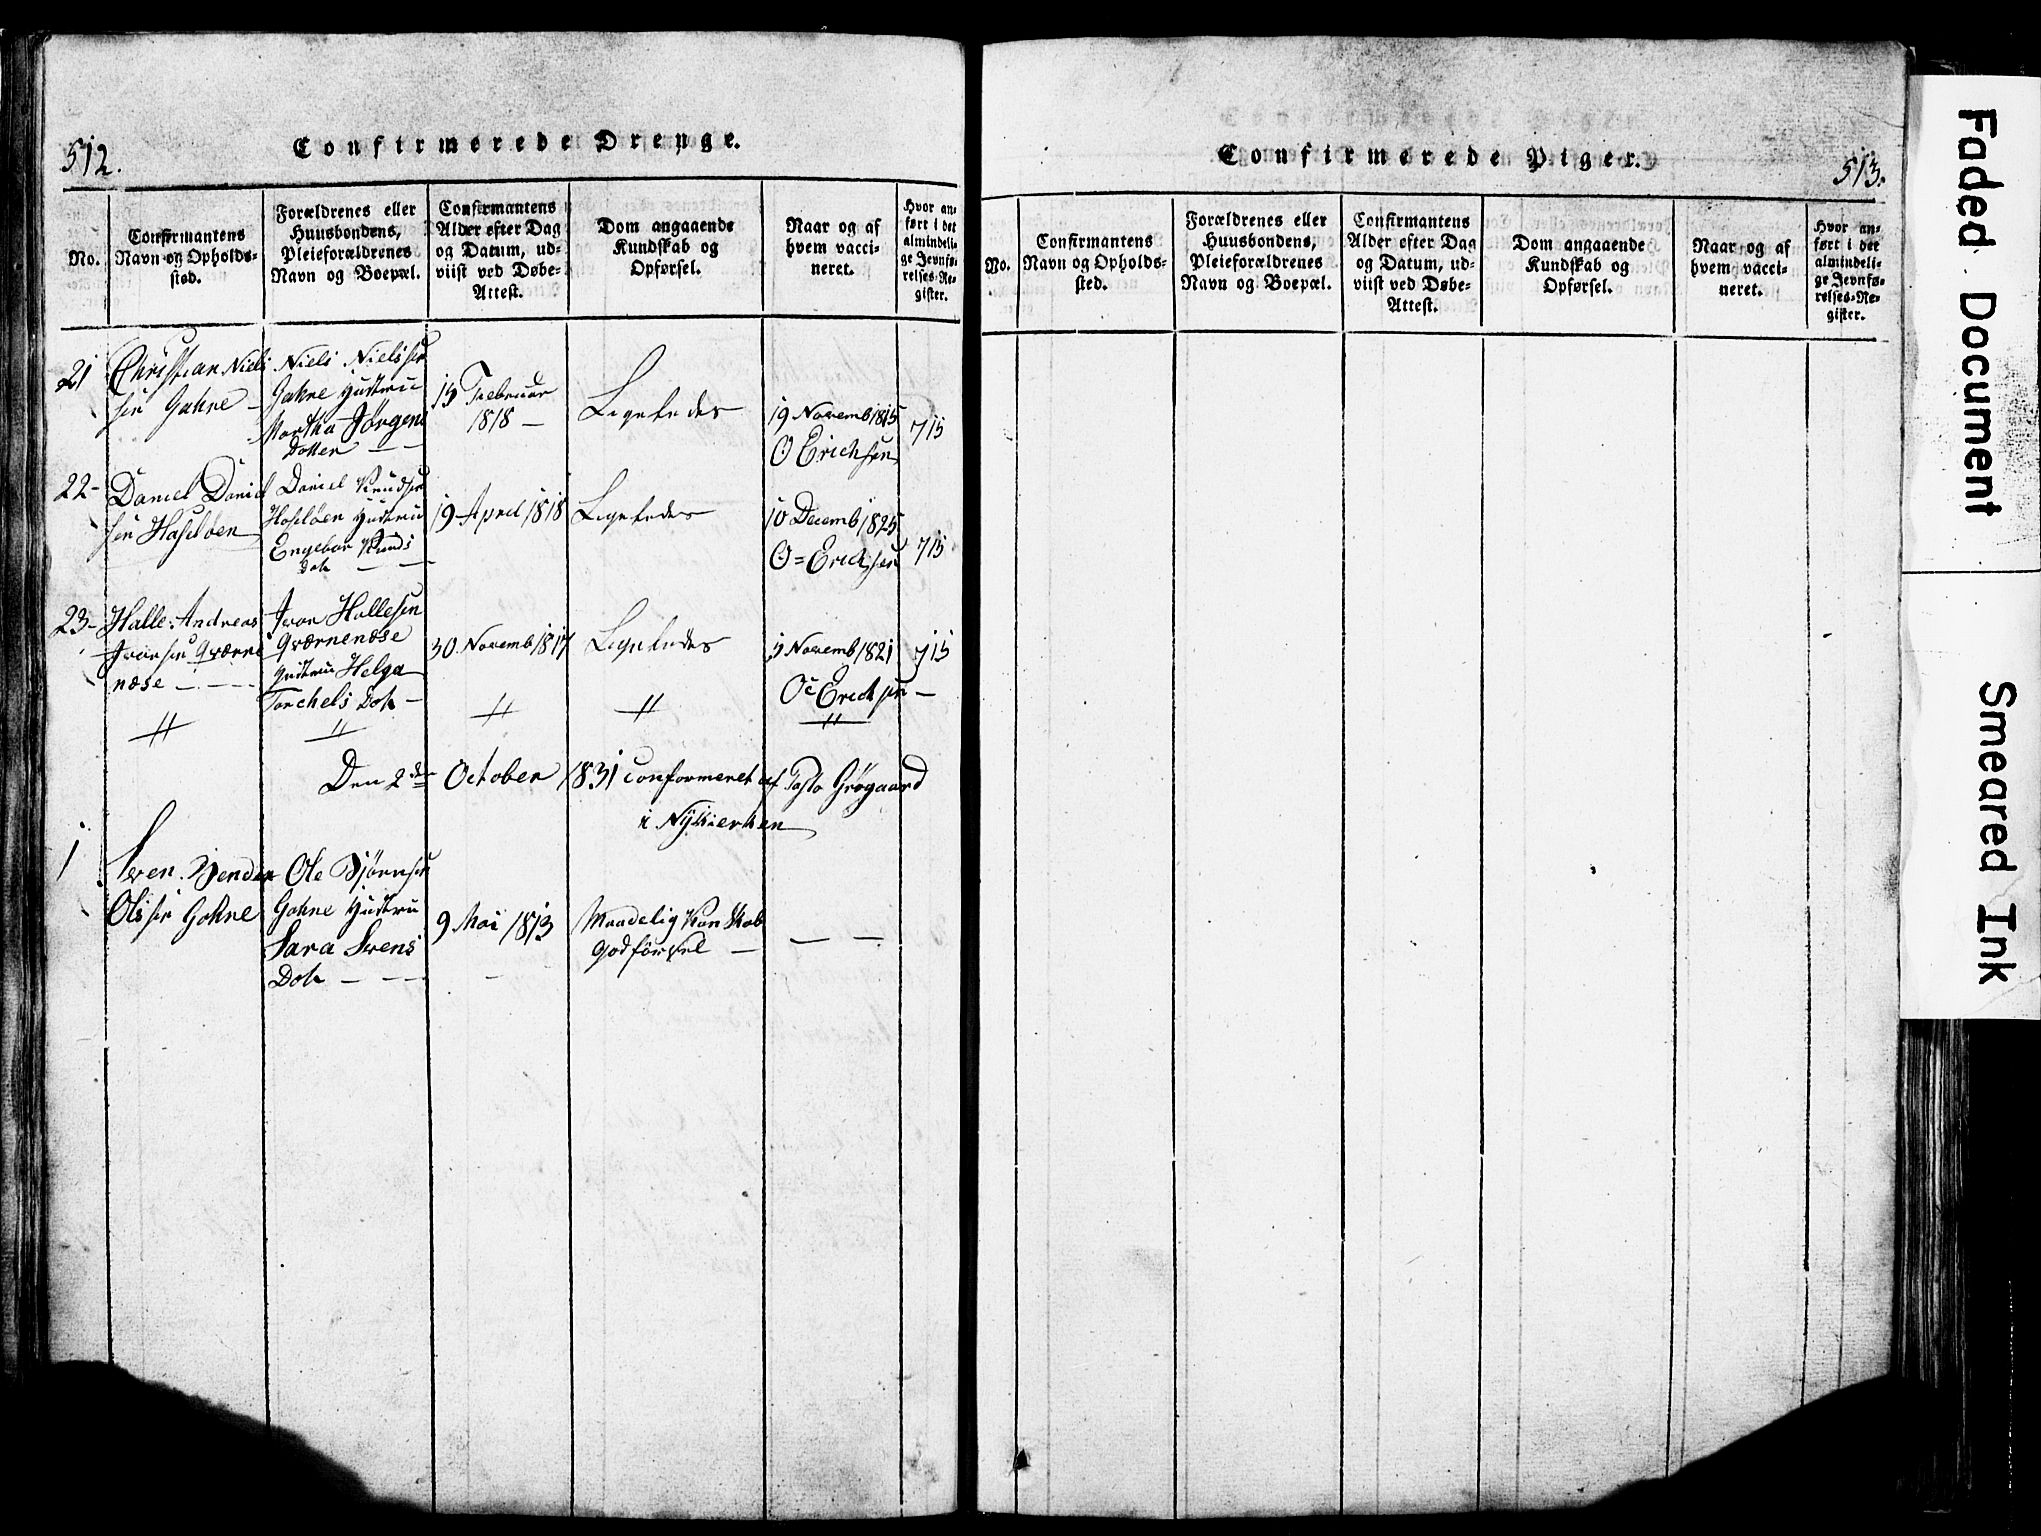 512.
Confirmerede Drenge.
No.
Confirmantens
Navn og Opholds-
sted.
Forældrenes eller
Huusbondens,
Pleieforældrenes
Navn og Boepæl.
Confirmantens
Alder efter Dag
og Datum, ud-
viist ved Døbe-
Attest.
Dom angaaende
Kundskab og
Opførsel.
Naar og af
hvem vacci-
neret.
Hvor an-
ført i det
almindeli-
ge Jevnfø-
relses-Re-
gister.
21
Christian Niel
sen Gahre
Niels Nielssen
Gahre Hustru
Martha Jörgens
Datter
15 Februar
1818
Ligeledes
19 Novemb 1815
O Erichsen
715
22
Daniel Daniel
sen Haselöen
Daniel Knudsen
Haselöen Hustru
Engebor Knuds
Dot
19 April 1818
Ligeledes
10 Decemb 1825
O = Erichsen
715
23
Halle Andreas
Ivarsen Qværne
næse
Ivar Hallesen
Qværnenæse
Hustru Helga
Torchels Dot
30 Novemb 1817
Ligeledes
5 Novemb 1821
Oe Erichsen
715
Den 2den October 1831 Conformeret af Pasto Grøgaard
i Nykierken
1
Svend
Olsen Gahre
Ole Bjørnsen
Gahre Hustru
Sara Svens
Dot
9 Mai 1813
Maadelig Kunskab
God förssel
Confirmerede Piger.
513.
No.
Confirmantens
Navn og Opholds-
sted.
Forældrenes eller
Huusbondens,
Pleieforældrenes
Navn og Boepæl.
Confirmantens
Alder efter Dag
og Datum, ud-
viist ved Døbe-
Attest.
Dom angaaende
Kundskab og
Opførsel.
Naar og af
hvem vacci-
neret.
Hvor an-
ført i det
almindeli-
ge Jevnfø-
relses-Re-
gister.
Faded Document
Smeared Ink